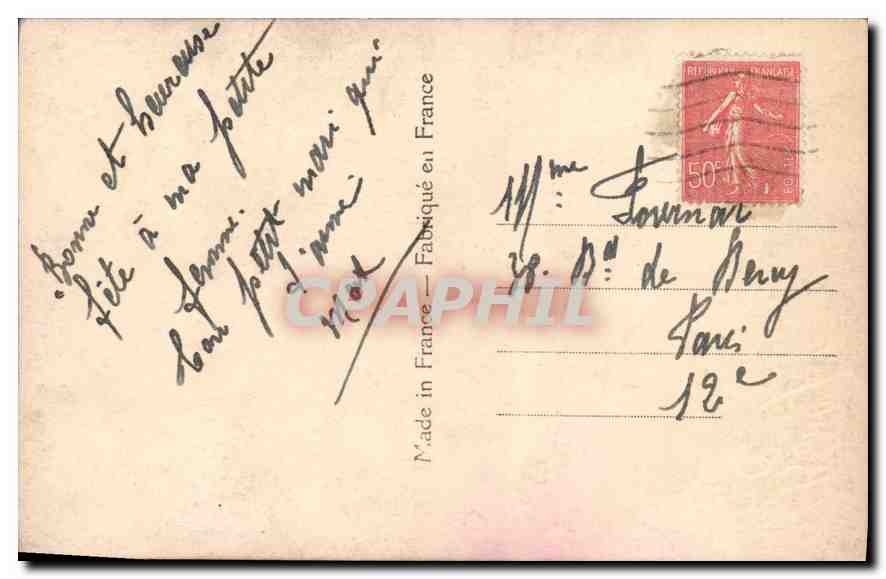 Bonne et heureuse
fête à ma petite
femme.
Ton petit mari qui
t'aime
Max
Made in France — Fabriqué en France
REPUBLIQUE FRANÇAISE
50c
Mme
28. Bd de Bercy
Paris
12e
CPAPHIL